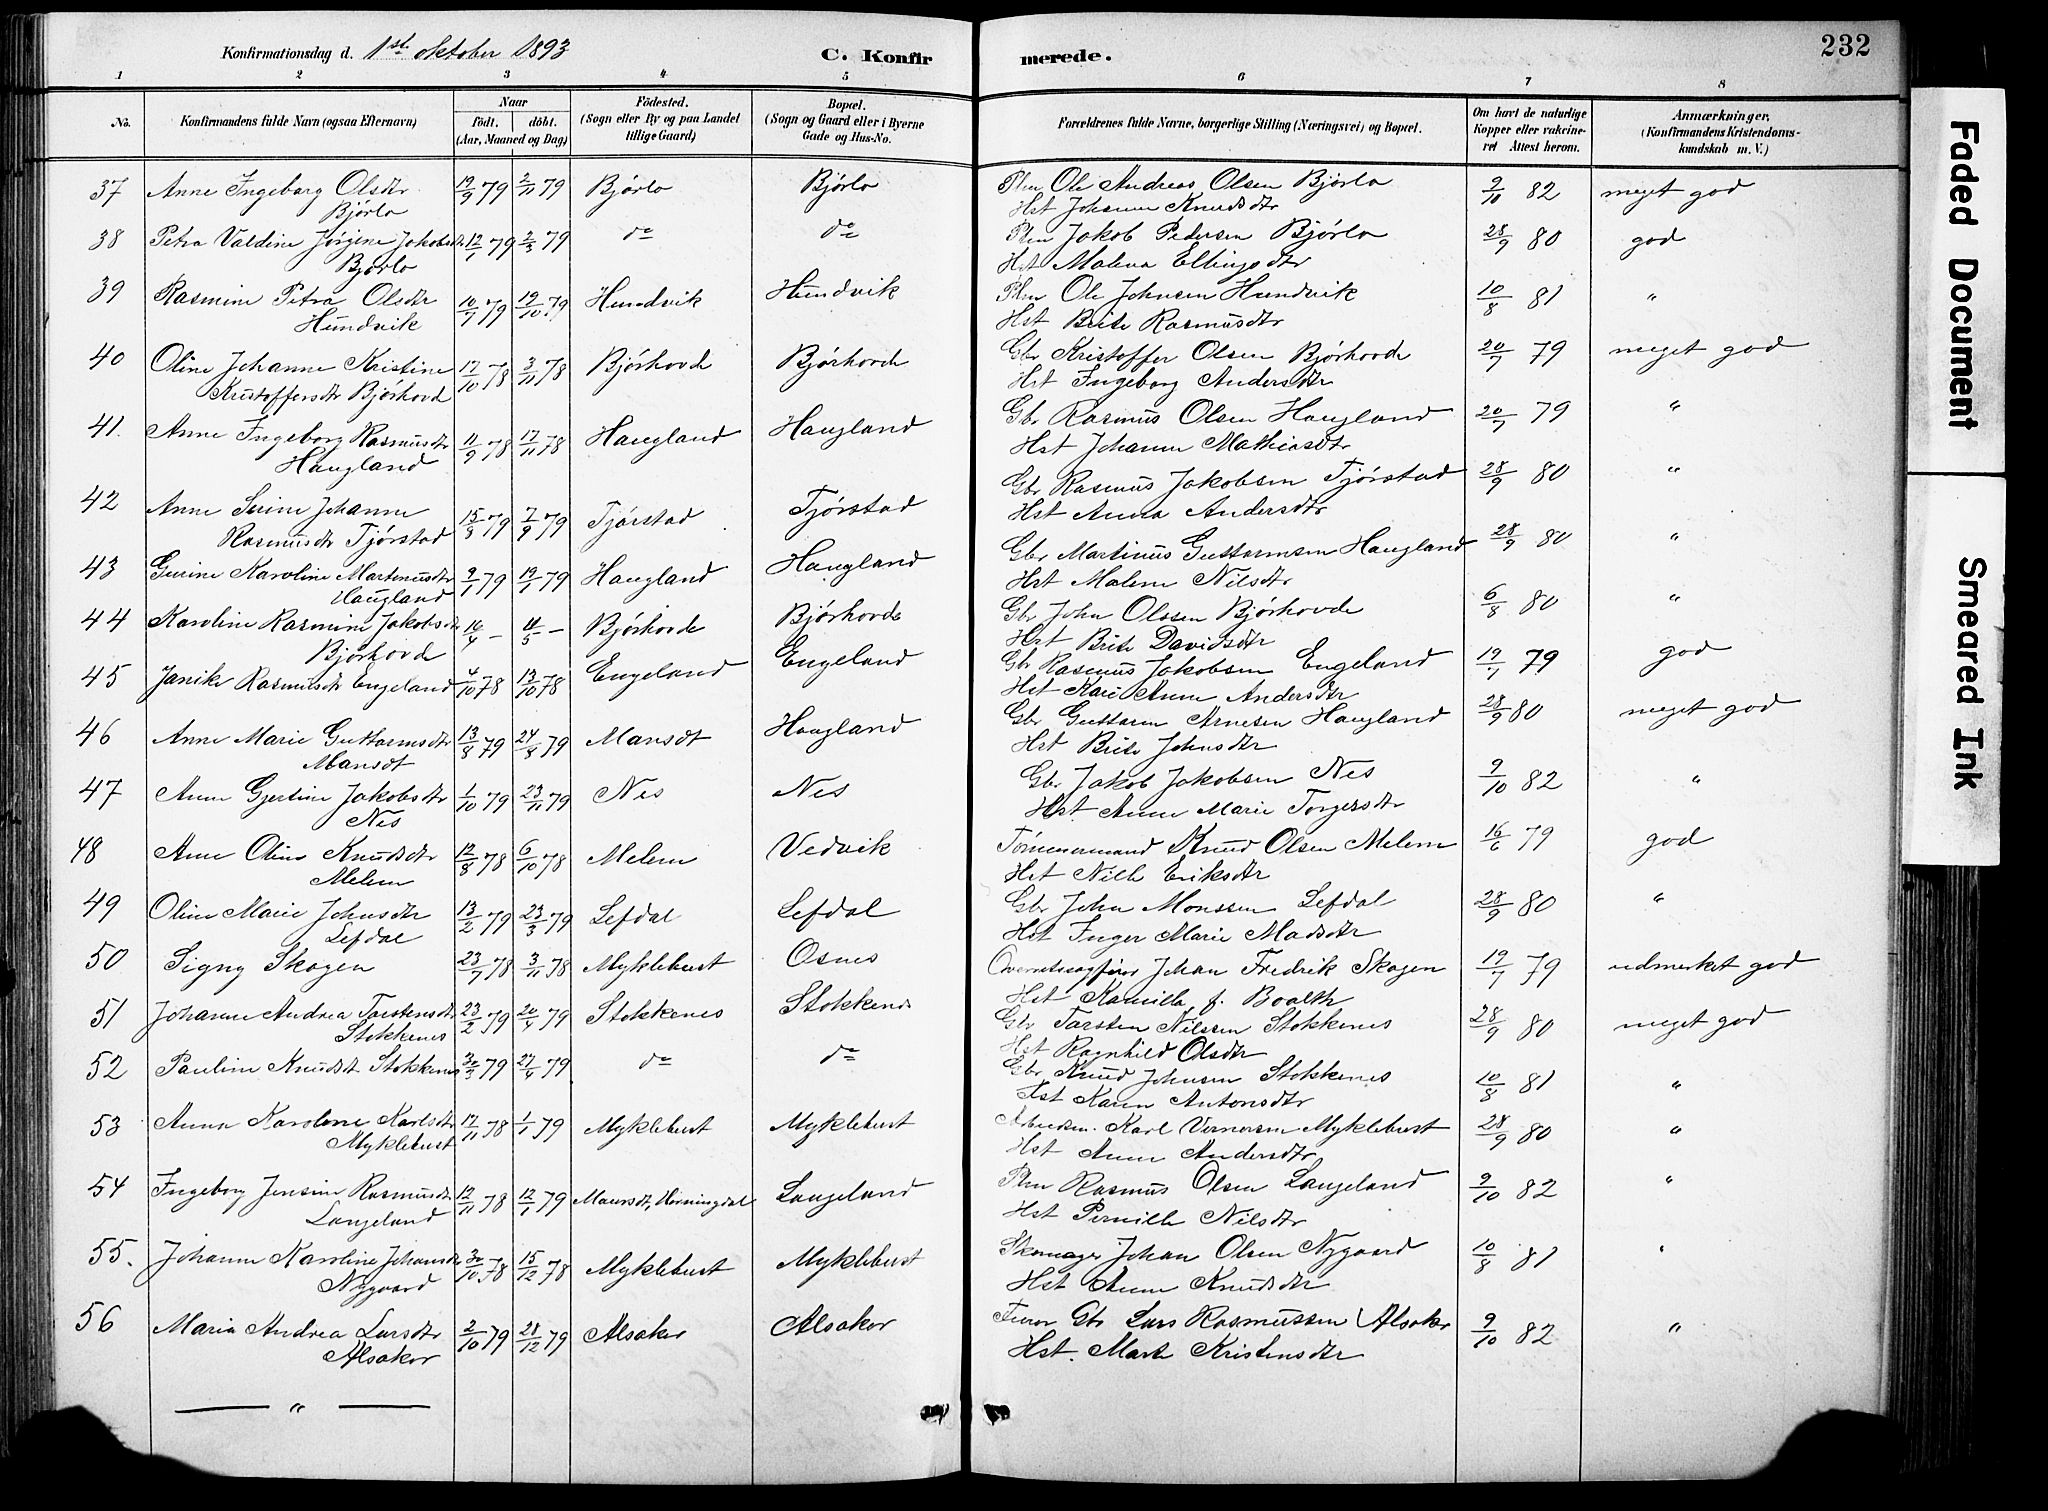 Konfirmationsdag d. 1st oktober 1893
C. Konfirmerede.
232
1 2 3 4 5 6 7 8
No.
Konfirmandens fulde Navn (ogsaa Efternavn)
Naar
født. døbt.
(Aar, Maaned og Dag)
Fødested.
(Sogn eller By og paa Landet
tillige Gaard)
Bopæl.
(Sogn og Gaard eller i Byerne
Gade og Hus-No.
Forældrenes fulde Navne, borgerlige Stilling (Næringsvei) og Bopæl.
Om havt de naturlige
Kopper eller vakcine-
ret Attest herom.
Anmærkninger,
(Konfirmandens Kristendoms-
kundskab m. V.)
37 Anne Ingeborg Olsdtr 19/9 79 2/11 79 Bjørlo Bjørlo Plm Ole Andreas Olsen Bjørlo 9/10 82 meget god
Bjørlo Hst Johanne Knudsdtr
38 Petra Valdine Jørgine Jakobsdtr 12/1 79 2/3 79 do do Plm Jakob Pedersen Bjørlo 28/9 80 god
Bjørlo Hst Malena Ellingsdtr
39 Rasmine Petra Olsdtr 10/7 79 19/10 79 Hundvik Hundvik Plm Ole Johnsen Hundvik 10/8 81 "
Hundvik Hst Brite Rasmusdtr
40 Oline Johanne Kristine 17/10 78 3/11 78 Bjørhovde Bjørhovde Gbr Kristoffer Olsen Bjørhovde 20/7 79 meget god
Kristoffersdtr Bjørhovd Hst Ingeborg Andersdtr
41. Anne Ingeborg Rasmusdtr 11/9 78 17/11 78 Haugland Haugland Gbr Rasmus Olsen Haugland 20/7 79 "
Haugland Hst Johanne Mathiasdtr
42 Anne Serine Johanne 15/3 79 7/9 79 Tjørstad Tjørstad Gbr Rasmus Jakobsen Tjørstad 28/9 80 "
Rasmusdtr Tjørstad Hst Anna Andersdtr
43 Gurine Karoline Martinusdtr 9/1 79 19/1 79 Haugland Haugland Gbr Martinus Guttormsen Haugland 28/9 80 "
Haugland Hst Malene Nilsdtr
44 Karoline Rasmine Jakobsdtr 16/4 - 11/5 - Bjørhovde Bjørhovde Gbr John Olssen Bjørhovde 6/8 80 "
Bjørhovde Hst Brite Davidsdtr
45 Janike Rasmusdtr Engeland 4/10 78 13/10 78 Engeland Engeland Gbr Rasmus Jakobsen Engeland 19/7 79 god
Hst Kari Anne Andersdtr
46 Anne Marie Guttormsdtr 13/8 79 24/8 79 Mansdt Haugland Gbr Guttorm Arnesen Haugland 28/9 80 meget god
Mansdt Hst Brite Johnsdtr
47 Anne Gjertine Jakobsdtr 1/10 79 23/11 79 Nes Nes Gbr Jakob Jakobsen Nes 9/10 82 "
Nes Hst Anne Marie Torgersdtr
48 Anne Oline Knudsdtr 12/8 78 6/10 78 Melem Vedvik Tømmermand Knud Olsen Melem 16/6 79 god
Melem Hst Nille Eriksdtr
49 Oline Marie Johnsdtr 13/2 79 23/3 79 Lefdal Lefdal Gbr John Monssen Lefdal 28/9 80 "
Lefdal Hst Inger Marie Madsdtr
50 Signy Skogen 23/7 78 3/11 78 Myklebust Osnes Overretssagfører Johan Fredrik Skogen 19/7 79 udmerket god
Hst Kamilla f. Boalth
51 Johanne Andrea Torstensdtr 23/2 79 20/4 79 Stokkenes Stokkenes Gbr Torsten Nilssen Stokkenes 28/9 80 meget god
Stokkenes Hst Ragnhild Olsdtr
52 Pauline Knudsdt Stokkenes 30/3 79 27/4 79 do do Gbr Knud Johnsen Stokkenes 10/8 81 "
Fst Karen Antonsdtr
53 Anna Karolene Karlsdtr 17/11 78 1/1 79 Myklebust Myklebust Arbeidsm. Karl Vernersen Myklebust 28/9 80 "
Myklebust Hst Anne Andersdtr
54 Ingeborg Jensine Rasmusdtr 12/11 78 12/1 79 Maursdt, Henningdal Langeland Plm Rasmus Olsen Langeland 9/10 82 "
Langeland Hst Pernille Nilsdtr
55. Johanne Karoline Johansdtr 30/10 78 15/12 78 Myklebust Myklebust Skomager Johan Olsen Nygaard 10/8 81 "
Nygaard Hst Anne Knudsdtr
56 Maria Andrea Larsdtr 2/10 79 28/12 79 Alsaker Alsaker Gbr Lars Rasmussen Alsaker 9/10 82 "
Alsaker Hst. Marte Kristensdtr
"
Faded Document
Smeared Ink